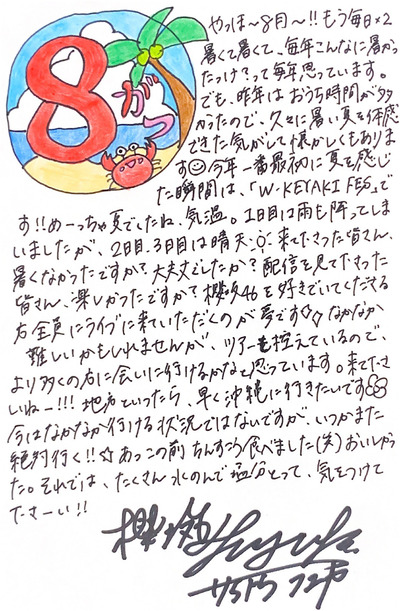 8がつ
やっほ〜8月〜!! もう毎日×2
暑くて暑くて、毎年こんなに暑か
ったっけ?って毎年思っています。
でも、昨年はおうち時間が多
かったので、久々に暑い夏を体感
できた気がして懐かしくもありま
す 今年一番最初に夏を感じ
た瞬間は、「W-KEYAKI FES」で
す!!めーっちゃ夏でしたね、気温。1日目は雨も降ってしま
いましたが、2日目、3日目は晴天 来て下さった皆さん、
暑くなかったですか?大丈夫でしたか?配信を見て下さった
皆さん、楽しかったですか?櫻坂46を好きでいてくださる
方全員にライブに来ていただくのが夢です☆☆なかなか
難しいかもしれませんが、ツアーを控えているので、
より多くの方に会いに行けるかなと思っています。来て下さ
いねー!!!地方といったら、早く沖縄に行きたいです
今はなかなか行ける状況ではないですが、いつかまた
絶対行く!!☆あっこの前ちんすこう食べました(笑)おいしかっ
た。それでは、たくさん水のんで塩分とって、気をつけて
下さーい!!
櫻坂